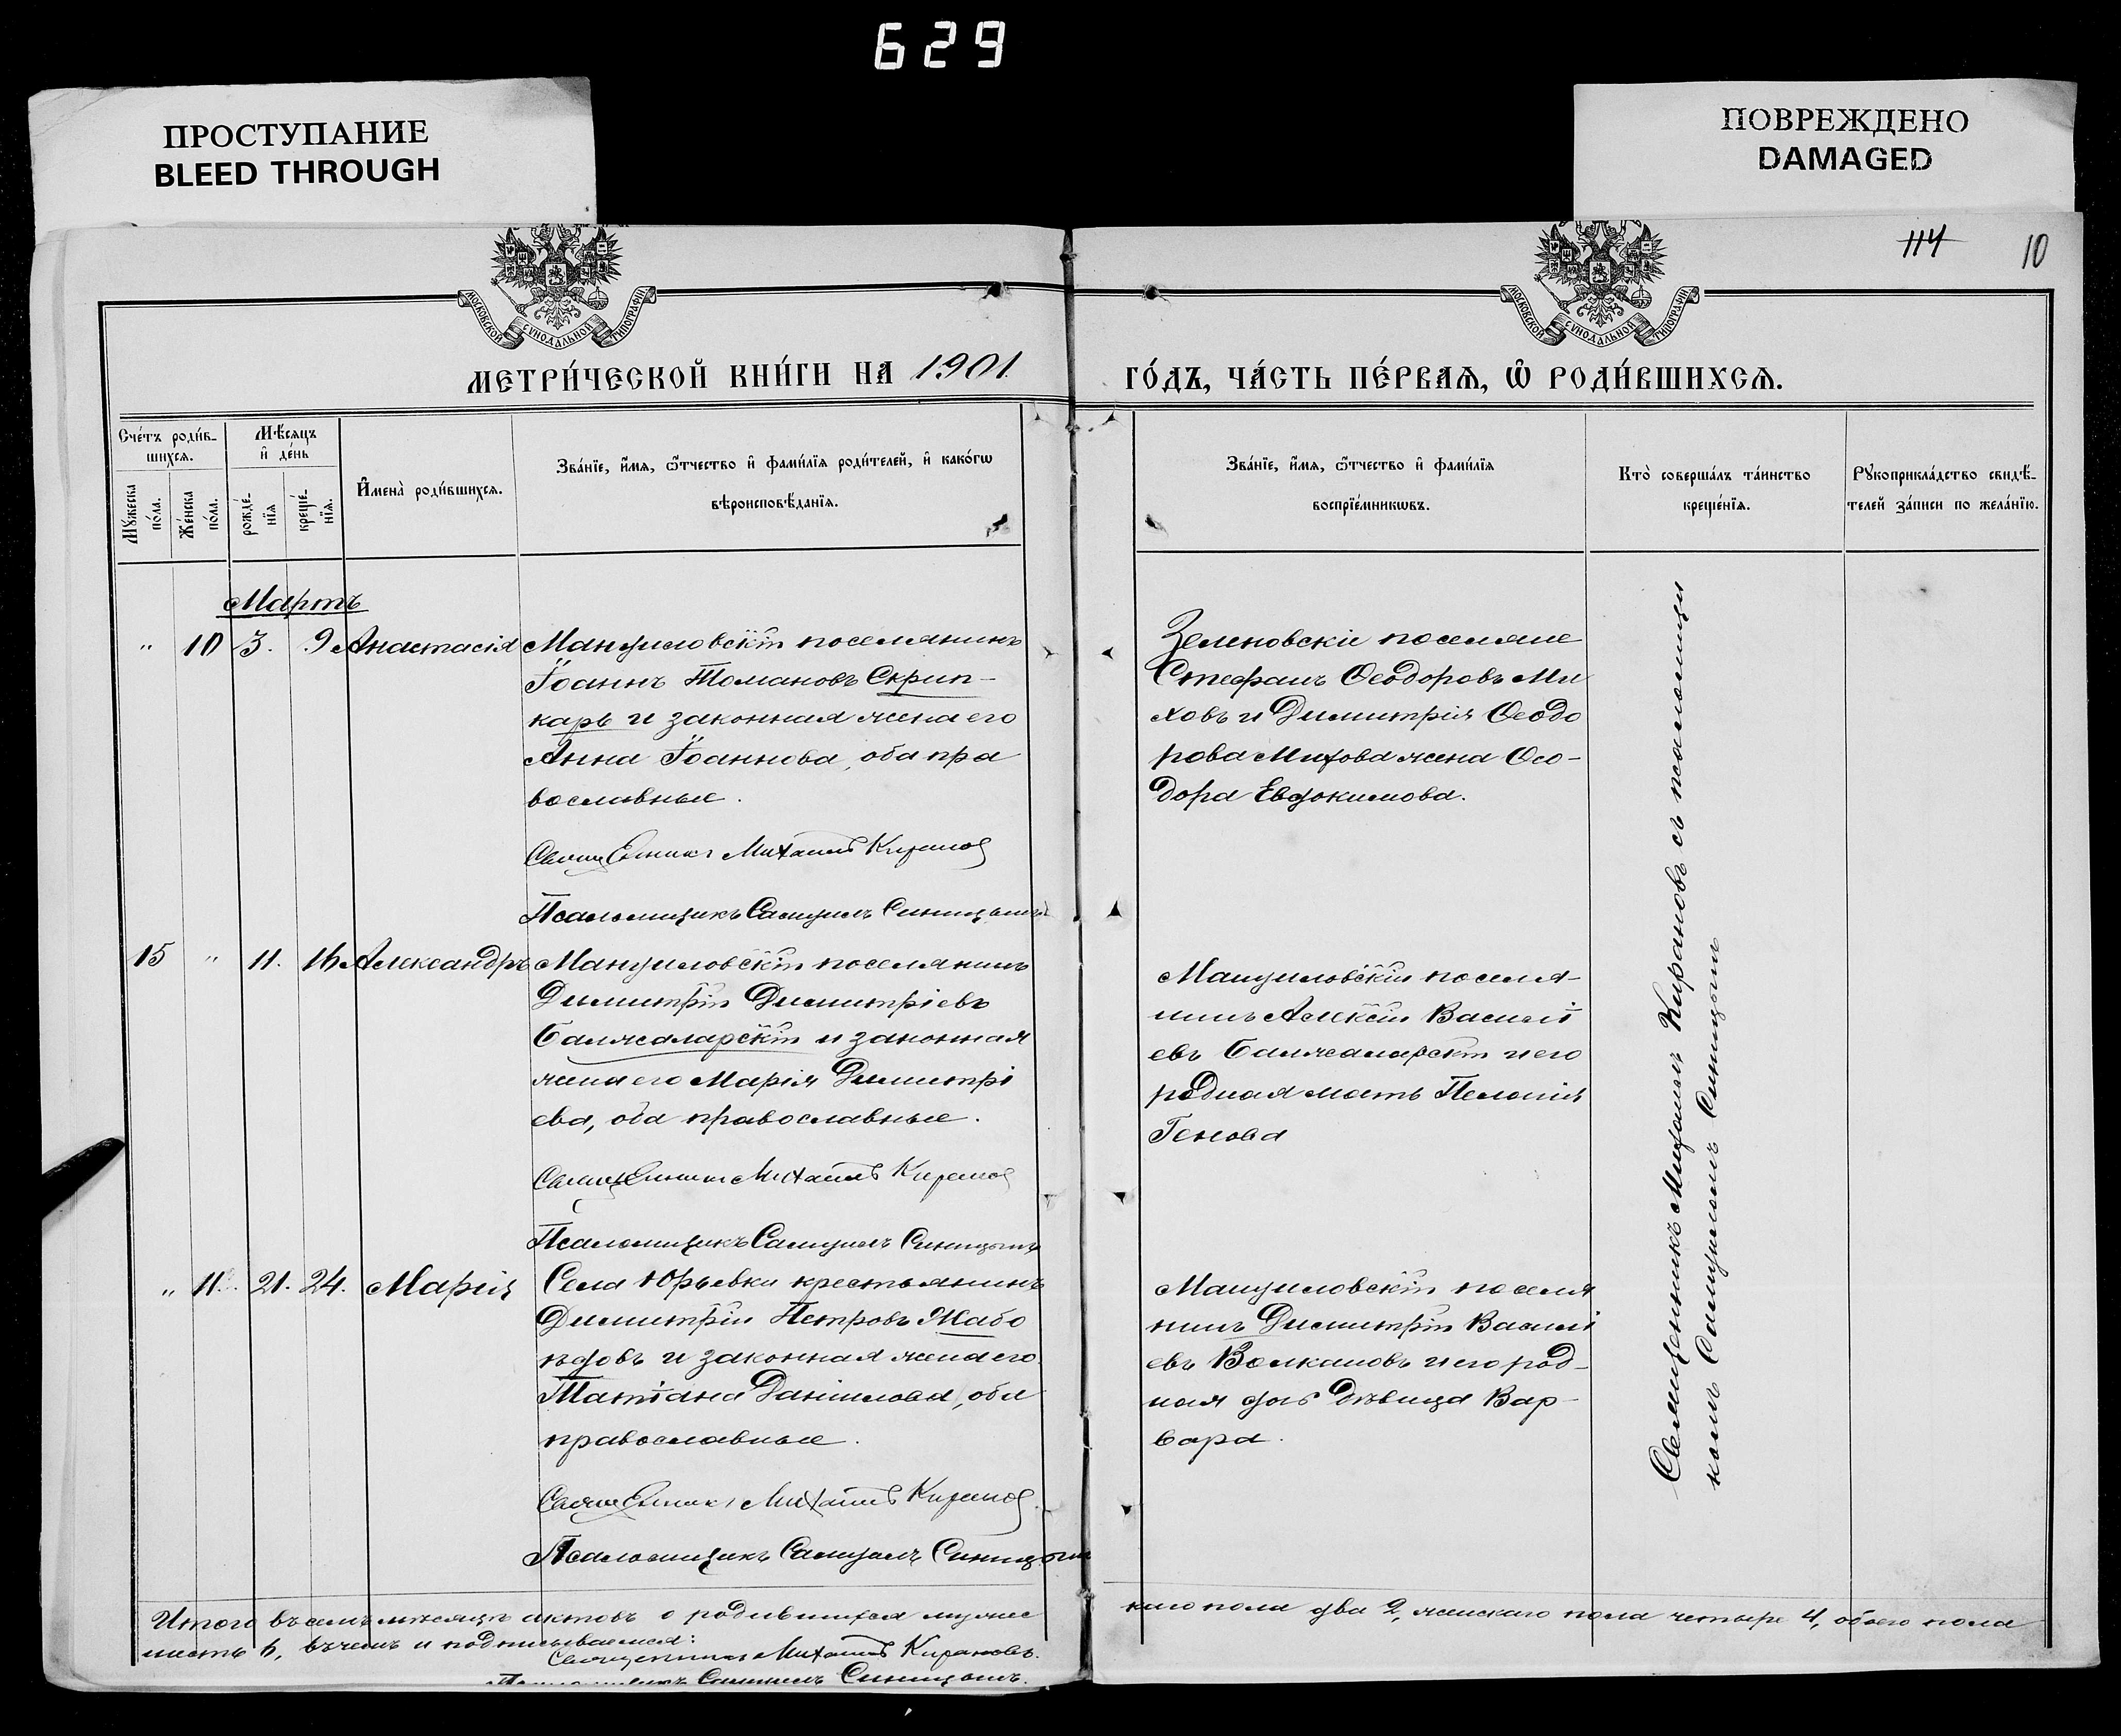 629
ПРОСТУПАНИЕ
BLEED THROUGH
ПОВРЕЖДЕНО
DAMAGED
114
10
МОСКОВСКОЙ СѴНОДАЛЬНОЙ ТИПОГРАФІИ
МОСКОВСКОЙ СѴНОДАЛЬНОЙ ТИПОГРАФІИ
МЕТРИ́ЧЕСКОЙ КНИ́ГИ НА 1901.
ГО́ДЪ, ЧА́СТЬ ПЕ́РВАѦ, Ѡ҆ РОДИ́ВШИХСѦ.
Сче́тъ роди́в-
шихсѧ.
Мꙋ́жеска
по́ла.
Же́нска
по́ла.
Мѣ́сѧцъ
и҆ де́нь
рожде́-
нїѧ
креще́-
нїѧ.
И҆мена̀ роди́вшихсѧ.
Зва́нїе, и҆́мѧ, ѻ҆́тчество и҆ фами́лїѧ роди́телей, и҆ како́гѡ
вѣроисповѣ́данїѧ.
Зва́нїе, и҆́мѧ, ѻ҆́тчество и҆ фами́лїѧ
воспрїе́мникѡвъ.
Кто̀ соверша́лъ та́инство
креще́нїѧ.
Рꙋкоприкла́дство свидѣ́-
телей за́писи по жела́нїю.
Мартъ
" 10 3. 9 Анастасія
Мануиловскій поселянинъ
Іоаннъ Романовъ Скрип-
карь и законная жена его
Анна Іоаннова, оба пра
вославные.
Священникъ Михаилъ Кирановъ
Псаломщикъ Самуилъ Синицынъ
Зеленовскіе поселяне
Стефанъ Ѳеодоровъ Ми
ховъ и Димитрія Ѳеодо
рова Михова жена Ѳео-
дора Евдокимова.
15 " 11. 16 Александръ
Мануиловскій поселянинъ
Димитрій Димитріевъ
Балжаларскій и законная
жена его Марія Димитрі
ева, оба православные.
Священникъ Михаилъ Кирановъ
Псаломщикъ Самуилъ Синицынъ
Мануиловскій поселя-
нинъ Алексій Василі
евъ Балжаларскій и его
родная мать Пелагія
Генова
" 11. 21. 24. Марія
Села Юрьевки крестьянинъ
Димитрій Петровъ
и законная жена его
Татіана Даніилова, оба
православные.
Священникъ Михаилъ Кирановъ.
Псаломщикъ Самуилъ Синицынъ
Мануиловскій поселя
нинъ Димитрій Василі
евъ Волкановъ и его род-
ная дочь дѣвица Вар-
вара.
Священникъ Михаилъ Кирановъ съ псаломщи
комъ Самуиломъ Синицынъ
Итого въ семъ мѣсяцѣ актовъ о родившихся мужес
каго пола два 2, женскаго пола четыре 4, обоего пола
шесть 6, въ чемъ и подписываемся:
Священникъ Михаилъ Кирановъ.
Псаломщикъ Самуилъ Синицынъ.